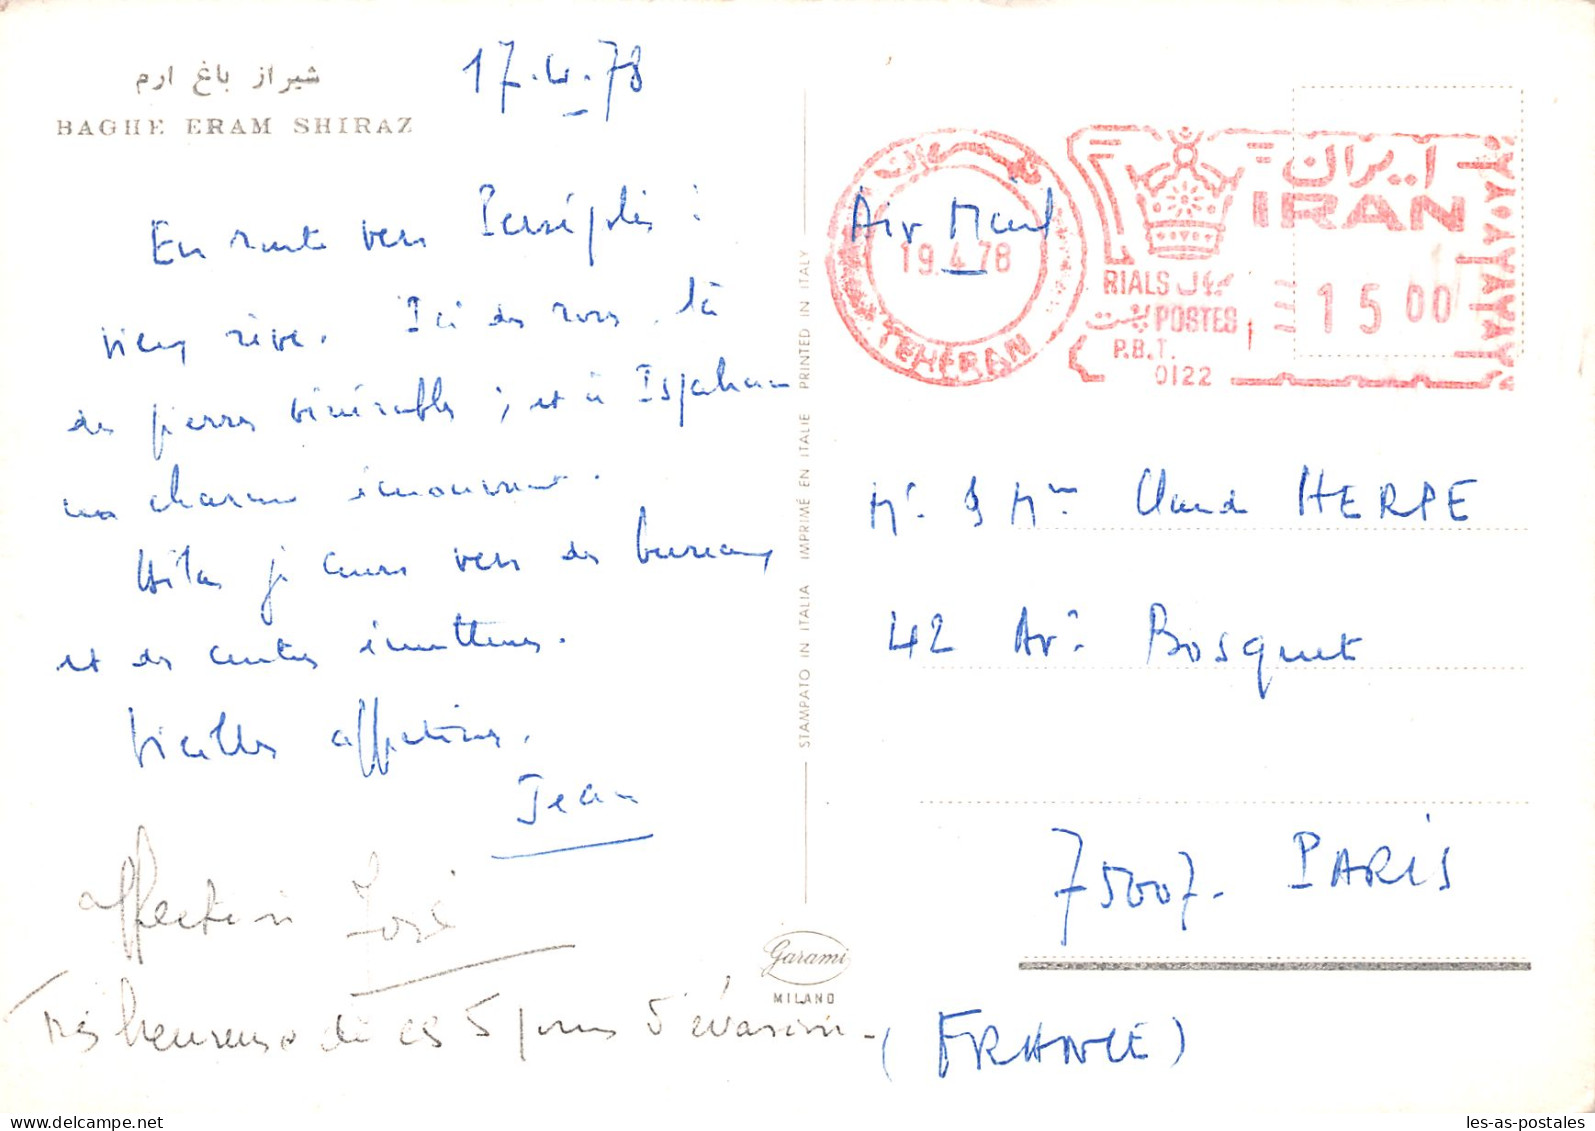 شیراز باغ ارم
BAGHE ERAM SHIRAZ
17.4.78
En route vers Persépolis :
vieux rêve. Ici des roses, là
des pierres vénérables ; et à Ispahan
un charme émouvant.
Hélas je cours vers des bureaux
et des centres émetteurs.
Vieilles affections.
Jean
affection José
Très heureuse de ces 5 jours d'évasion -
STAMPATO IN ITALIA IMPRIMÉ EN ITALIE PRINTED IN ITALY
Garami
MILANO
Air Mail
19.4.78
TEHERAN
ایران
IRAN
RIALS ریال
پست POSTES
P.B.T.
0122
15 00
Mr & Mme Claude HERPE
42 Av. Bosquet
75007. PARIS
(FRANCE)
les-as-postales
les-as-postales.com